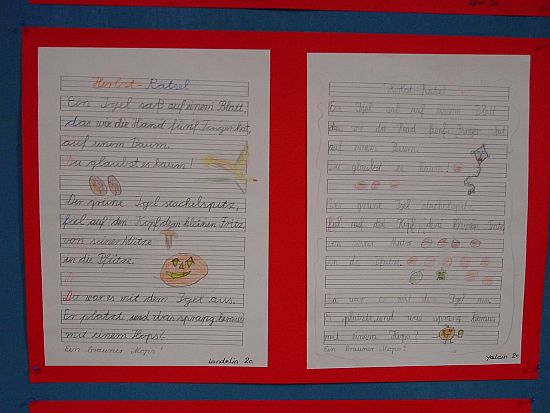 Herbst-Rätsel
Ein Igel saß auf einem Blatt
das wie die Hand fünf Finger hat,
auf einem Baum.
Du glaubst es kaum!
Der grüne Igel stachelspitz,
fiel auf den Kopf dem kleinen Fritz,
von seiner Mütze
in die Pfütze.
Da war es mit dem Igel aus.
Er platzt und was sprang heraus
mit einem Hops?
Ein brauner Mops!
Landelin 2c
Herbst-Rätsel
Ein Igel saß auf einem Blatt
das wie die Hand fünf Finger hat
auf einem Baum.
Du glaubst es kaum!
Der grüne Igel stachelspitz
fiel auf den Kopf dem kleinen Fritz
von seiner Mütze
in die Pfütze.
Da war es mit dem Igel aus.
Er platzt und was sprang heraus
mit einem Hops?
Ein brauner Mops!
Yalcin 2c